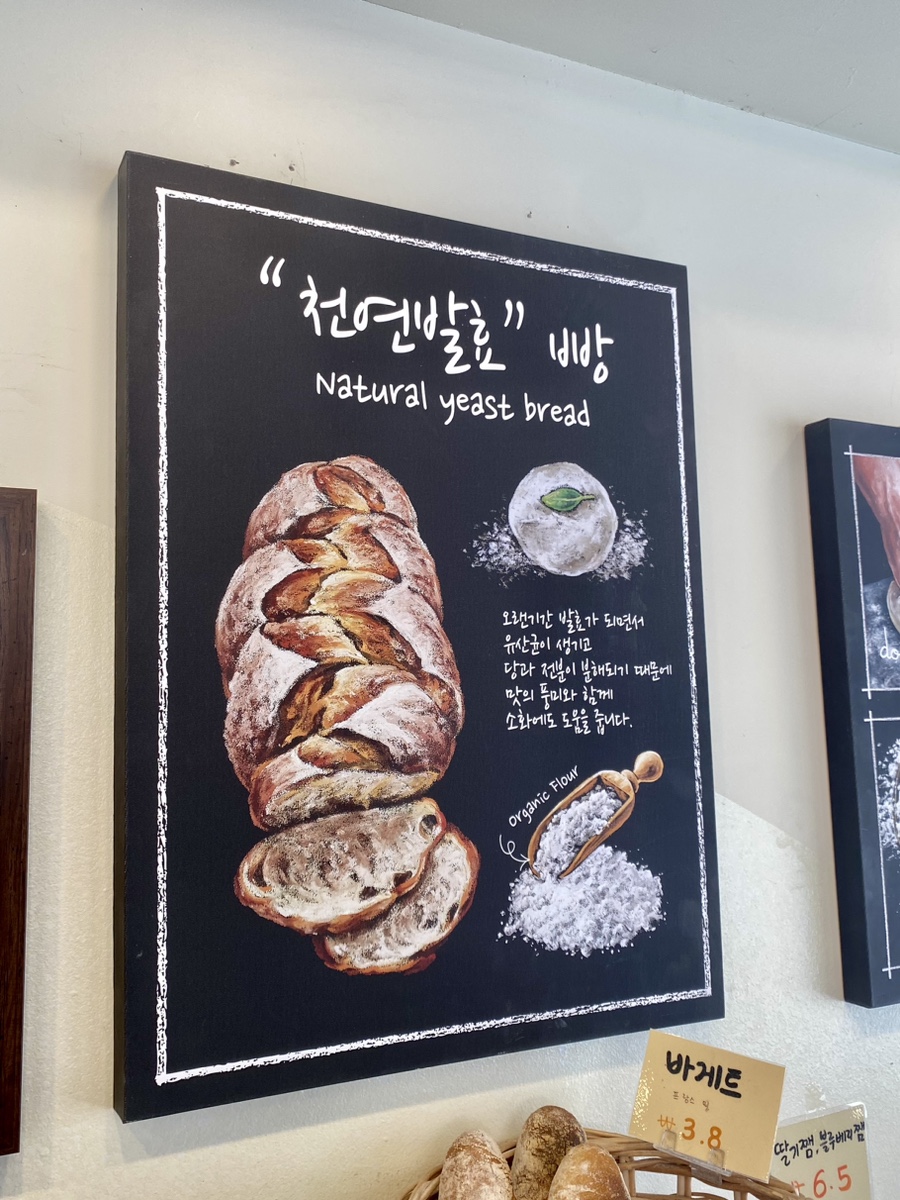 “천연발효” 빵
Natural yeast bread
오랜기간 발효가 되면서
유산균이 생기고
당과 전분이 분해되기 때문에
맛의 풍미와 함께
소화에도 도움을 줍니다.
organic Flour
do
바게트
프랑스 빵
₩3.8
딸기쨈, 블루베리쨈
₩6.5